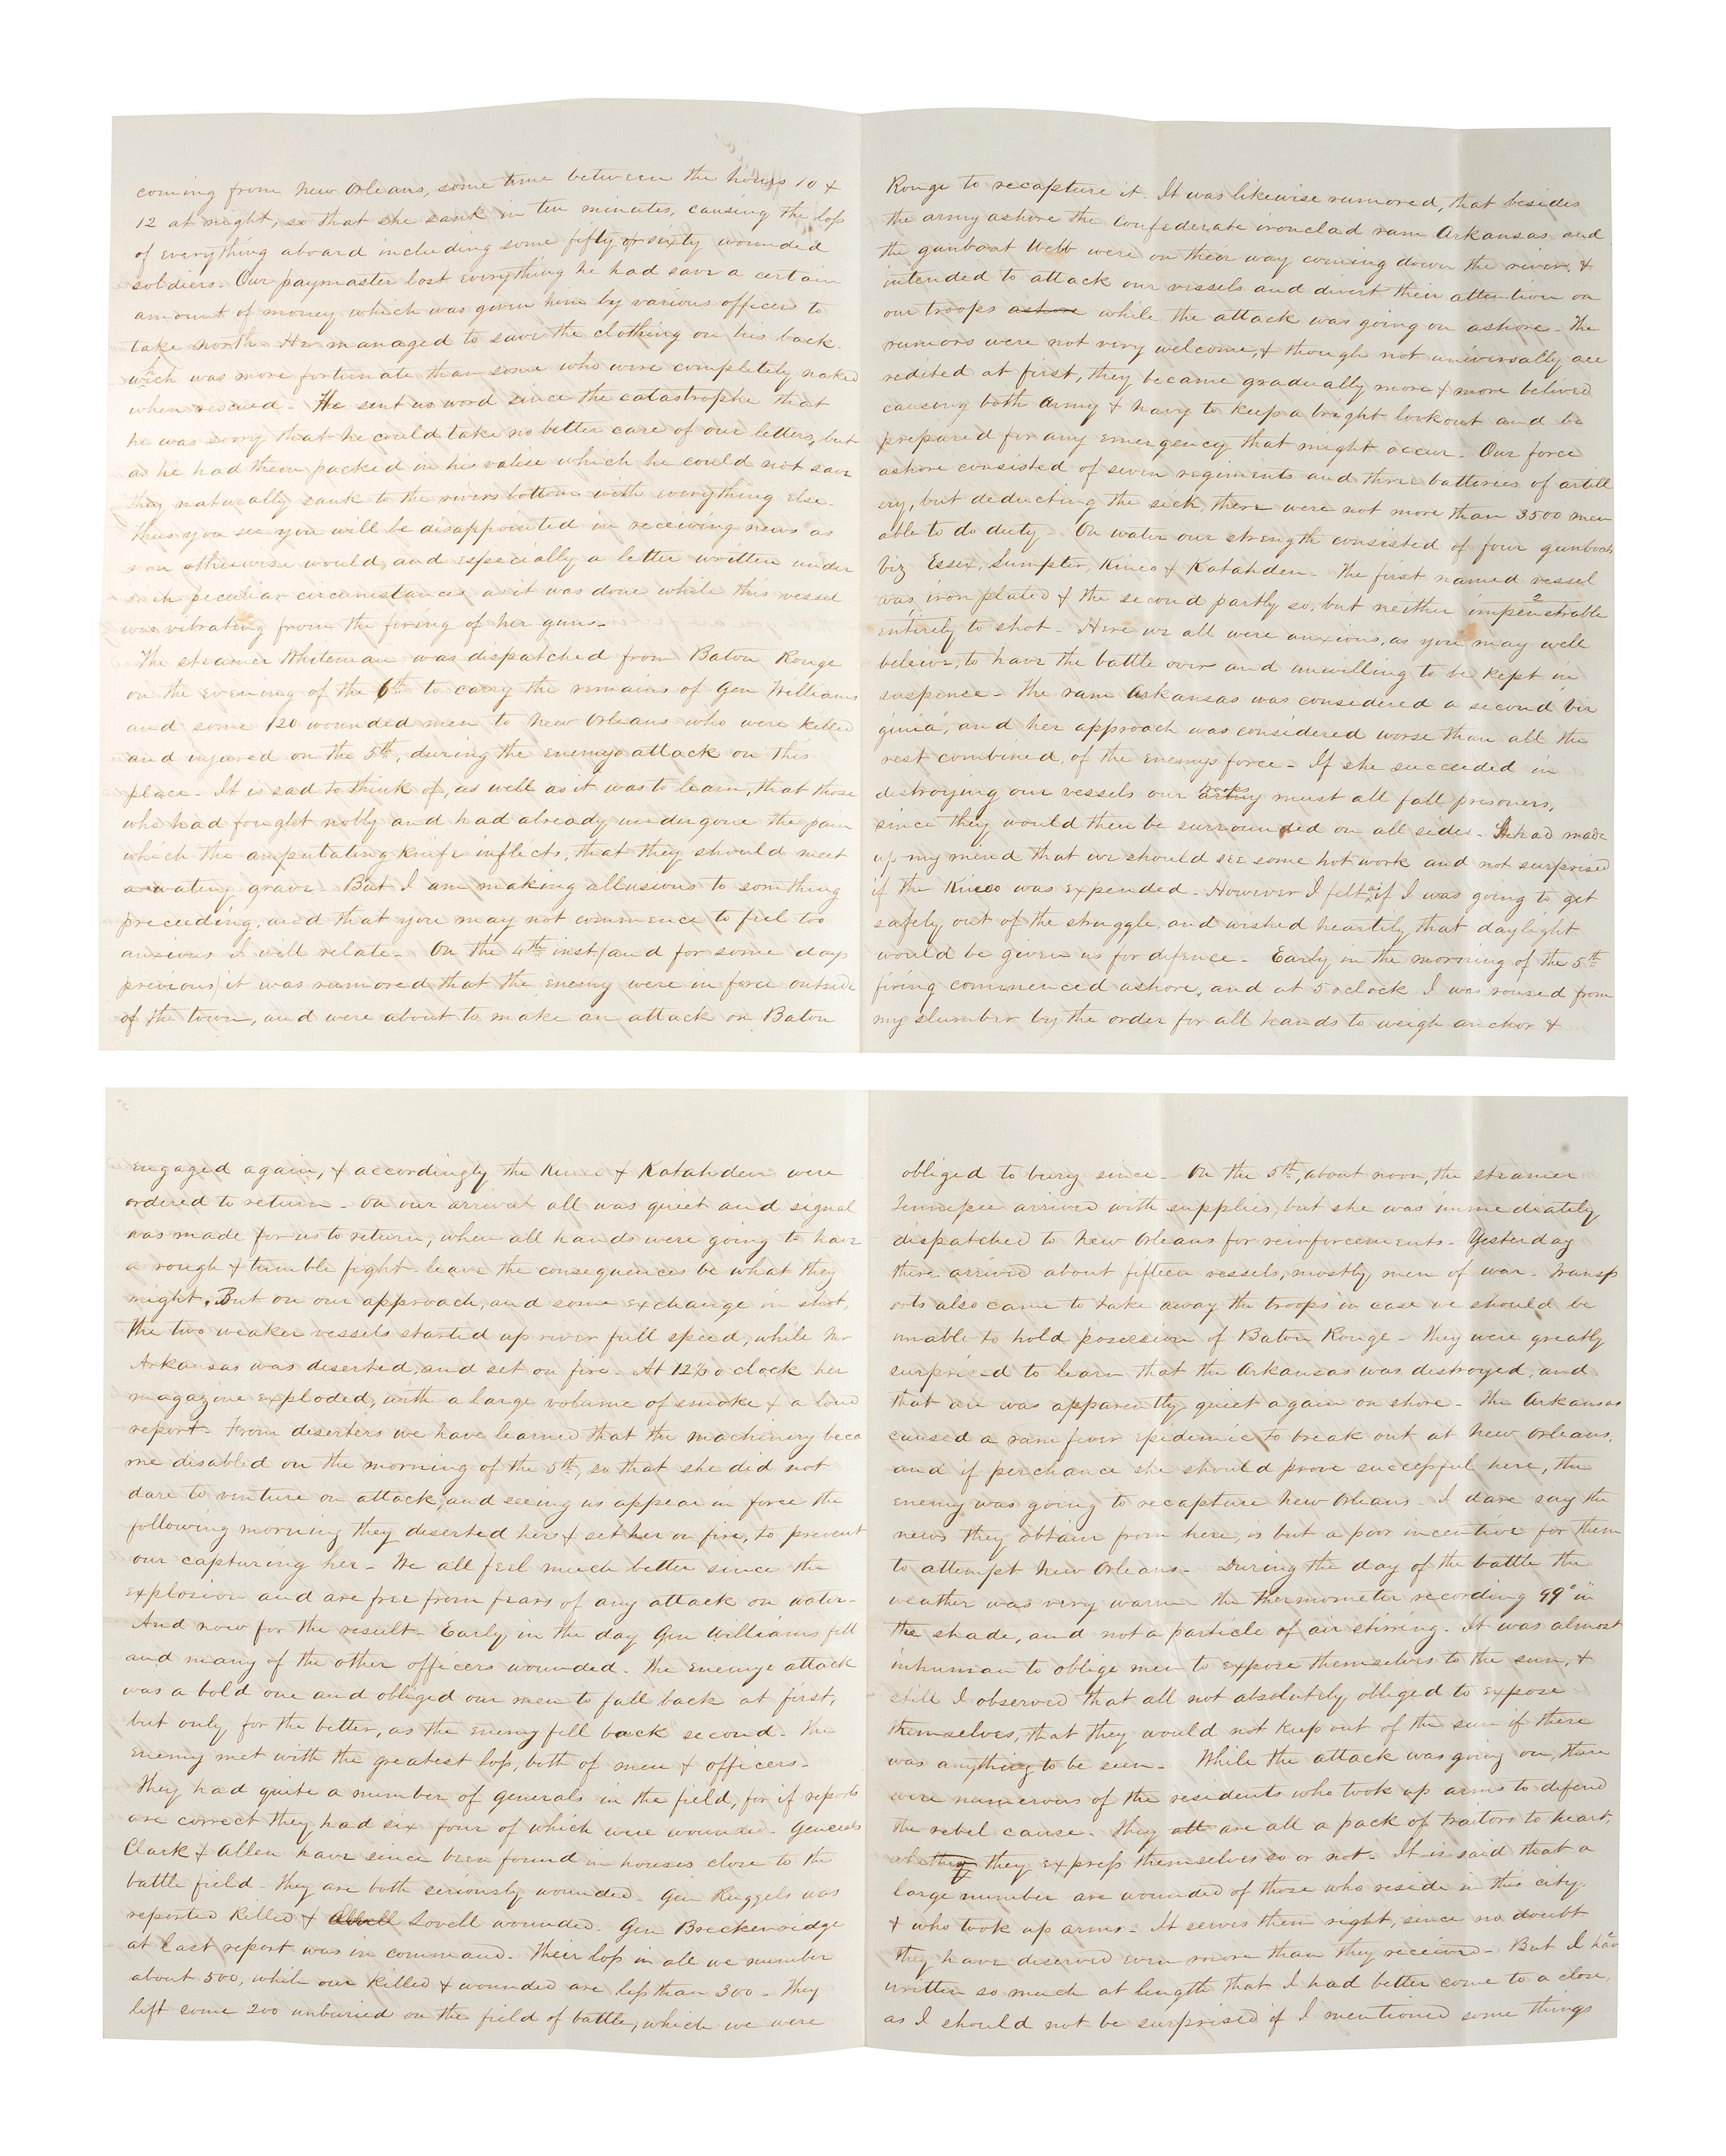 coming from New Orleans, some time between the hours 10 &
12 at night, so that she sank in ten minutes, causing the loss
of everything aboard including some fifty or sixty wounded
soldiers. Our paymaster lost everything he had save a certain
amount of money which was given him by various officers to
take north. He managed to save the clothing on his back
wich was more fortunate than some who were completely naked
when rescued - He sent us word since the catastrophe that
he was sorry that he could take no better care of our letters, but
as he had them packed in his valise which he could not save
they naturally sank to the rivers bottom with everything else.
Thus you see you will be disappointed in receiving news as
soon otherwise would, and especially a letter written under
such peculiar circumstances, as it was done while this vessel
was vibrating from the firing of her guns -
The steamer Whiteman was dispatched from Baton Rouge
on the evening of the 6th to carry the remains of Gen Williams
and some 120 wounded men to New Orleans who were killed
and injured on the 5th, during the enemys attack on this
place - It is sad to think of, as well as it was to learn, that those
who had fought nobly and had already undergone the pain
which the amputating knife inflects, that they should meet
a watery grave - But I am making allusions to something
preceeding, and that you may not commence to feel too
anxious I will relate - On the 4th inst (and for some days
previous) it was rumored that the enemy were in force outside
of the town, and were about to make an attack on Baton
Rouge to recapture it. It was likewise rumored, that besides
the army ashore the confederate ironclad ram Arkansas and
the gunboat Webb were on their way coming down the river, &
intended to attack our vessels and divert their attention on
our troops ashore while the attack was going on ashore - The
rumors were not very welcome, & though not universally acc
redited at first, they became gradually more & more belived
causing both Army & Navy to keep a bright lookout and be
prepared for any emergency that might occur - Our force
ashore consisted of seven regiments and three batteries of artill
ery, but deducting the sick, there were not more than 3500 men
able to do duty - On water our strength consisted of four gunboats
viz Essex, Sumpter, Kineo & Katahden - The first named vessel
was iron plated & the second partly so, but neither impenetrable
entirely to shot - Here we all were anxious, as you may well
beleive, to have the battle over and unwilling to be kept in
suspence - The ram Arkansas was considered a second "Vir
ginia", and her approach was considered worse than all the
rest combined, of the enemys force - If she succeeded in
destroying our vessels our army troops must all fall prisoners,
since they would then be surrounded on all sides - I had made
up my mind that we should see some hot work and not surprised
if the Kineo was expended - However I felt as if I was going to get
safely out of the struggle, and wished heartily that daylight
would be given us for defence - Early in the morning of the 5th
firing commenced ashore, and at 5 oclock I was roused from
my slumber by the order for all hands to weigh anchor &
engaged again, & accordingly the Kineo & Katahden were
ordered to return - On our arrival all was quiet and signal
was made for us to return, when all hands were going to have
a rough & tumble fight leave the consequences be what they
might. But on our approach, and some exchange in shot,
the two weaker vessels started up river full speed, while
Arkansas was deserted, and set on fire - At 12 o clock her
magazine exploded, with a large volume of smoke & a loud
report - From deserters we have learned that the machinery beca
me disabled on the morning of the 5th, so that she did not
dare to venture on attack, and seeing us appear in force the
following morning they deserted her & set her on fire, to prevent
our capturing her - We all feel much better since the
explosion and are free from fears of any attack on water -
And now for the result - Early in the day Gen Williams fell
and many of the other officers wounded - The enemys attack
was a bold one and obliged our men to fall back at first,
but only for the better, as the enemy fell back second - The
enemy met with the greatest loss, both of men & officers -
They had quite a number of generals in the field, for if reports
are correct they had six four of which were wounded - Generals
Clark & Allen have since been found in houses close to the
battle field - They are both seriously wounded - Gen Ruggels was
reported killed & Lovell wounded. Gen Breckenridge
at last report was in command. Their loss in all we number
about 500, while our killed & wounded are less than 300 - They
left some 200 unburied on the field of battle, which we were
obliged to bury since - On the 5th, about noon, the steamer
Tennessee arrived with supplies, but she was immediately
dispatched to New Orleans for reinforcements - Yesterday
there arrived about fifteen vessels, mostly men of war - Transp
orts also came to take away the troops in case we should be
unable to hold possession of Baton Rouge - They were greatly
surprised to learn that the Arkansas was destroyed, and
that all was apparently quiet again on shore - The Arkansas
caused a ram fever epidemic to break out at New Orleans,
and if perchance she should prove successful here, the
enemy was going to recapture New Orleans - I dare say the
news they obtain from here, is but a poor incentive for them
to attempt New Orleans - During the day of the battle the
weather was very warm the thermometer recording 99° in
the shade, and not a particle of air stirring. It was almost
inhuman to oblige men to expose themselves to the sun, &
still I observed that all not absolutely obliged to expose
themselves, that they would not keep out of the sun if there
was anything to be seen - While the attack was going on, there
were numerous of the residents who took up arms to defend
the rebel cause - They all are all a pack of traitors to heart,
they express themselves so or not - It is said that a
large number are wounded of those who reside in this city
& who took up arms - It serves them right, since no doubt
they have deserved even more than they received - But I have
written so much at length that I had better come to a close,
as I should not be surprised if I mentioned some things